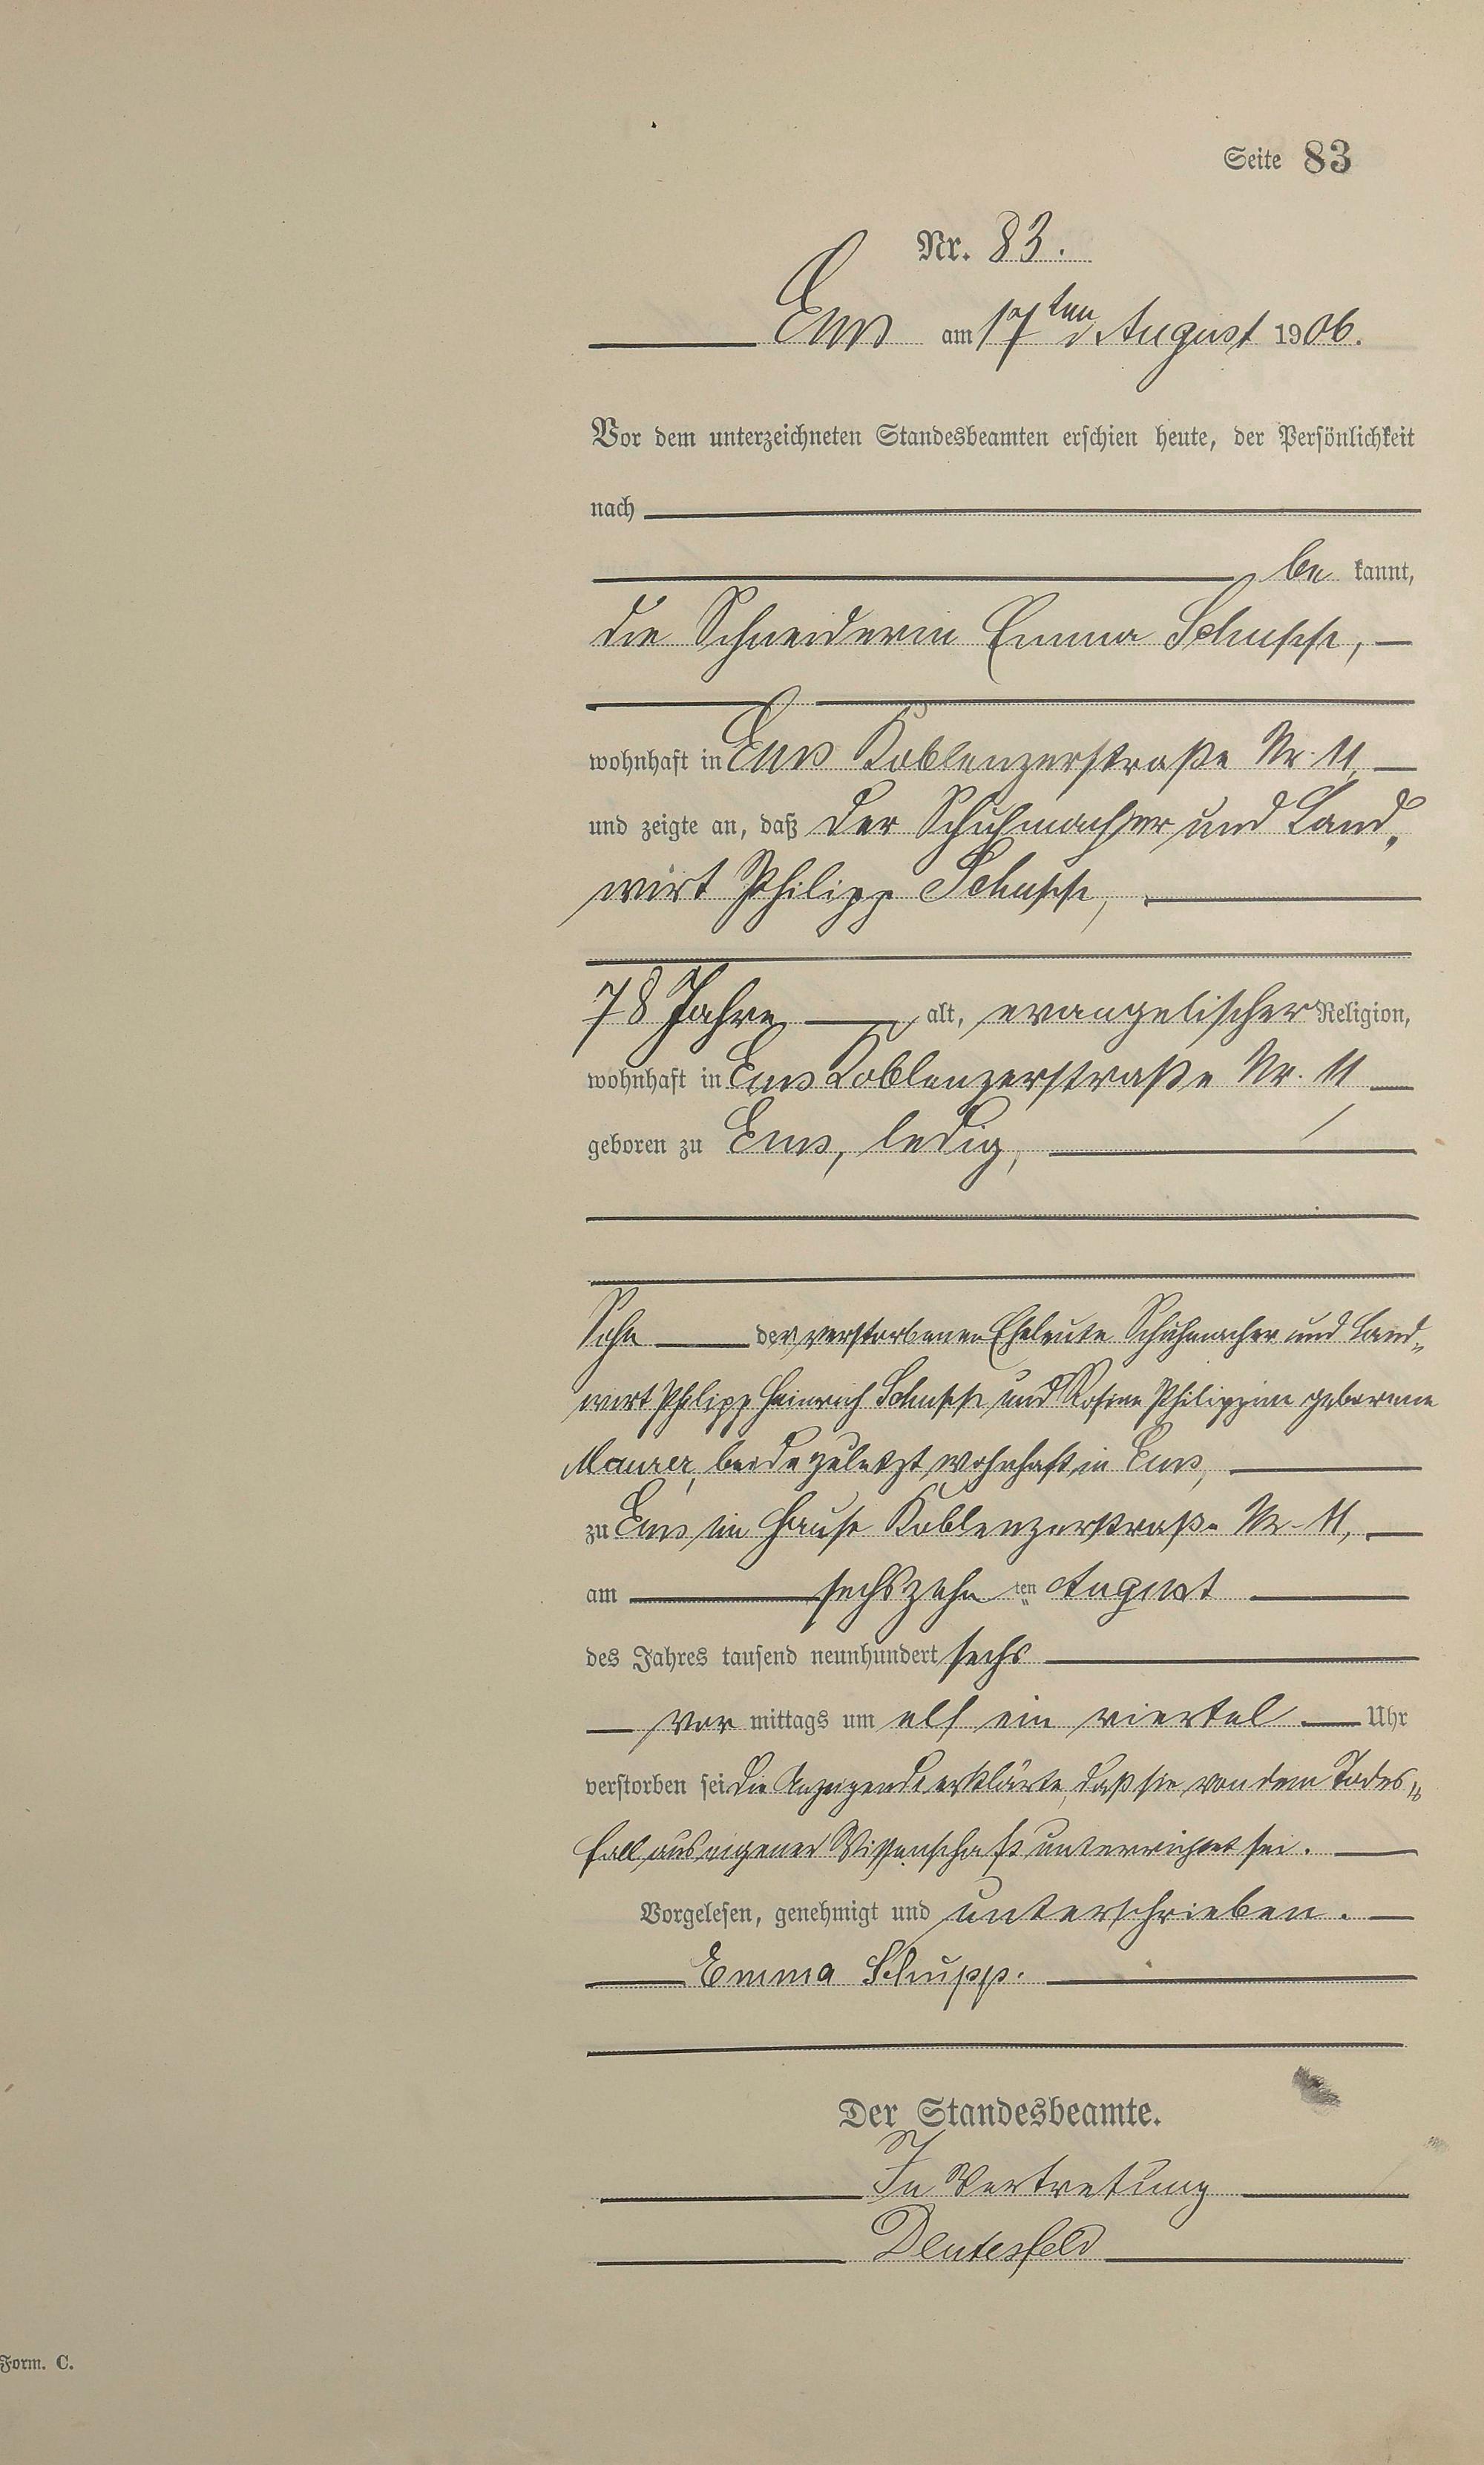 Seite 83
Nr. 83.
Ems am 17ten August 1906.
Vor dem unterzeichneten Standesbeamten erschien heute, der Persönlichkeit
nach
be kannt,
die Schneiderin Emma Schupp,
wohnhaft in Ems Koblenzerstraße Nr. 11,
und zeigte an, daß der Schuhmacher und Land-
wirt Philipp Schupp,
78 Jahre alt, evangelischer Religion,
wohnhaft in Ems Koblenzerstraße Nr. 11
geboren zu Ems, ledig,
Sohn der verstorbenen Eheleute Schuhmacher und Land-
wirt Philipp Heinrich Schupp und Rosine Philippine geborene
Maurer, beide zuletzt wohnhaft in Ems,
zu Ems im Hause Koblenzerstraße Nr. 11,
am sechszehn ten August
des Jahres tausend neunhundert sechs
vor mittags um elf ein viertel Uhr
verstorben sei. Die Anzeigende erklärte, daß sie von dem Todes-
fall aus eigener Wissenschaft unterrichtet sei.
Vorgelesen, genehmigt und unterschrieben.
Emma Schupp.
Der Standesbeamte.
In Vertretung
Deutesfeld
Form. C.